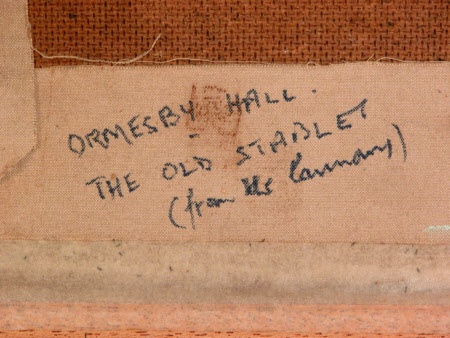 ORMESBY HALL.
THE OLD STABLES
(from the Laundry)